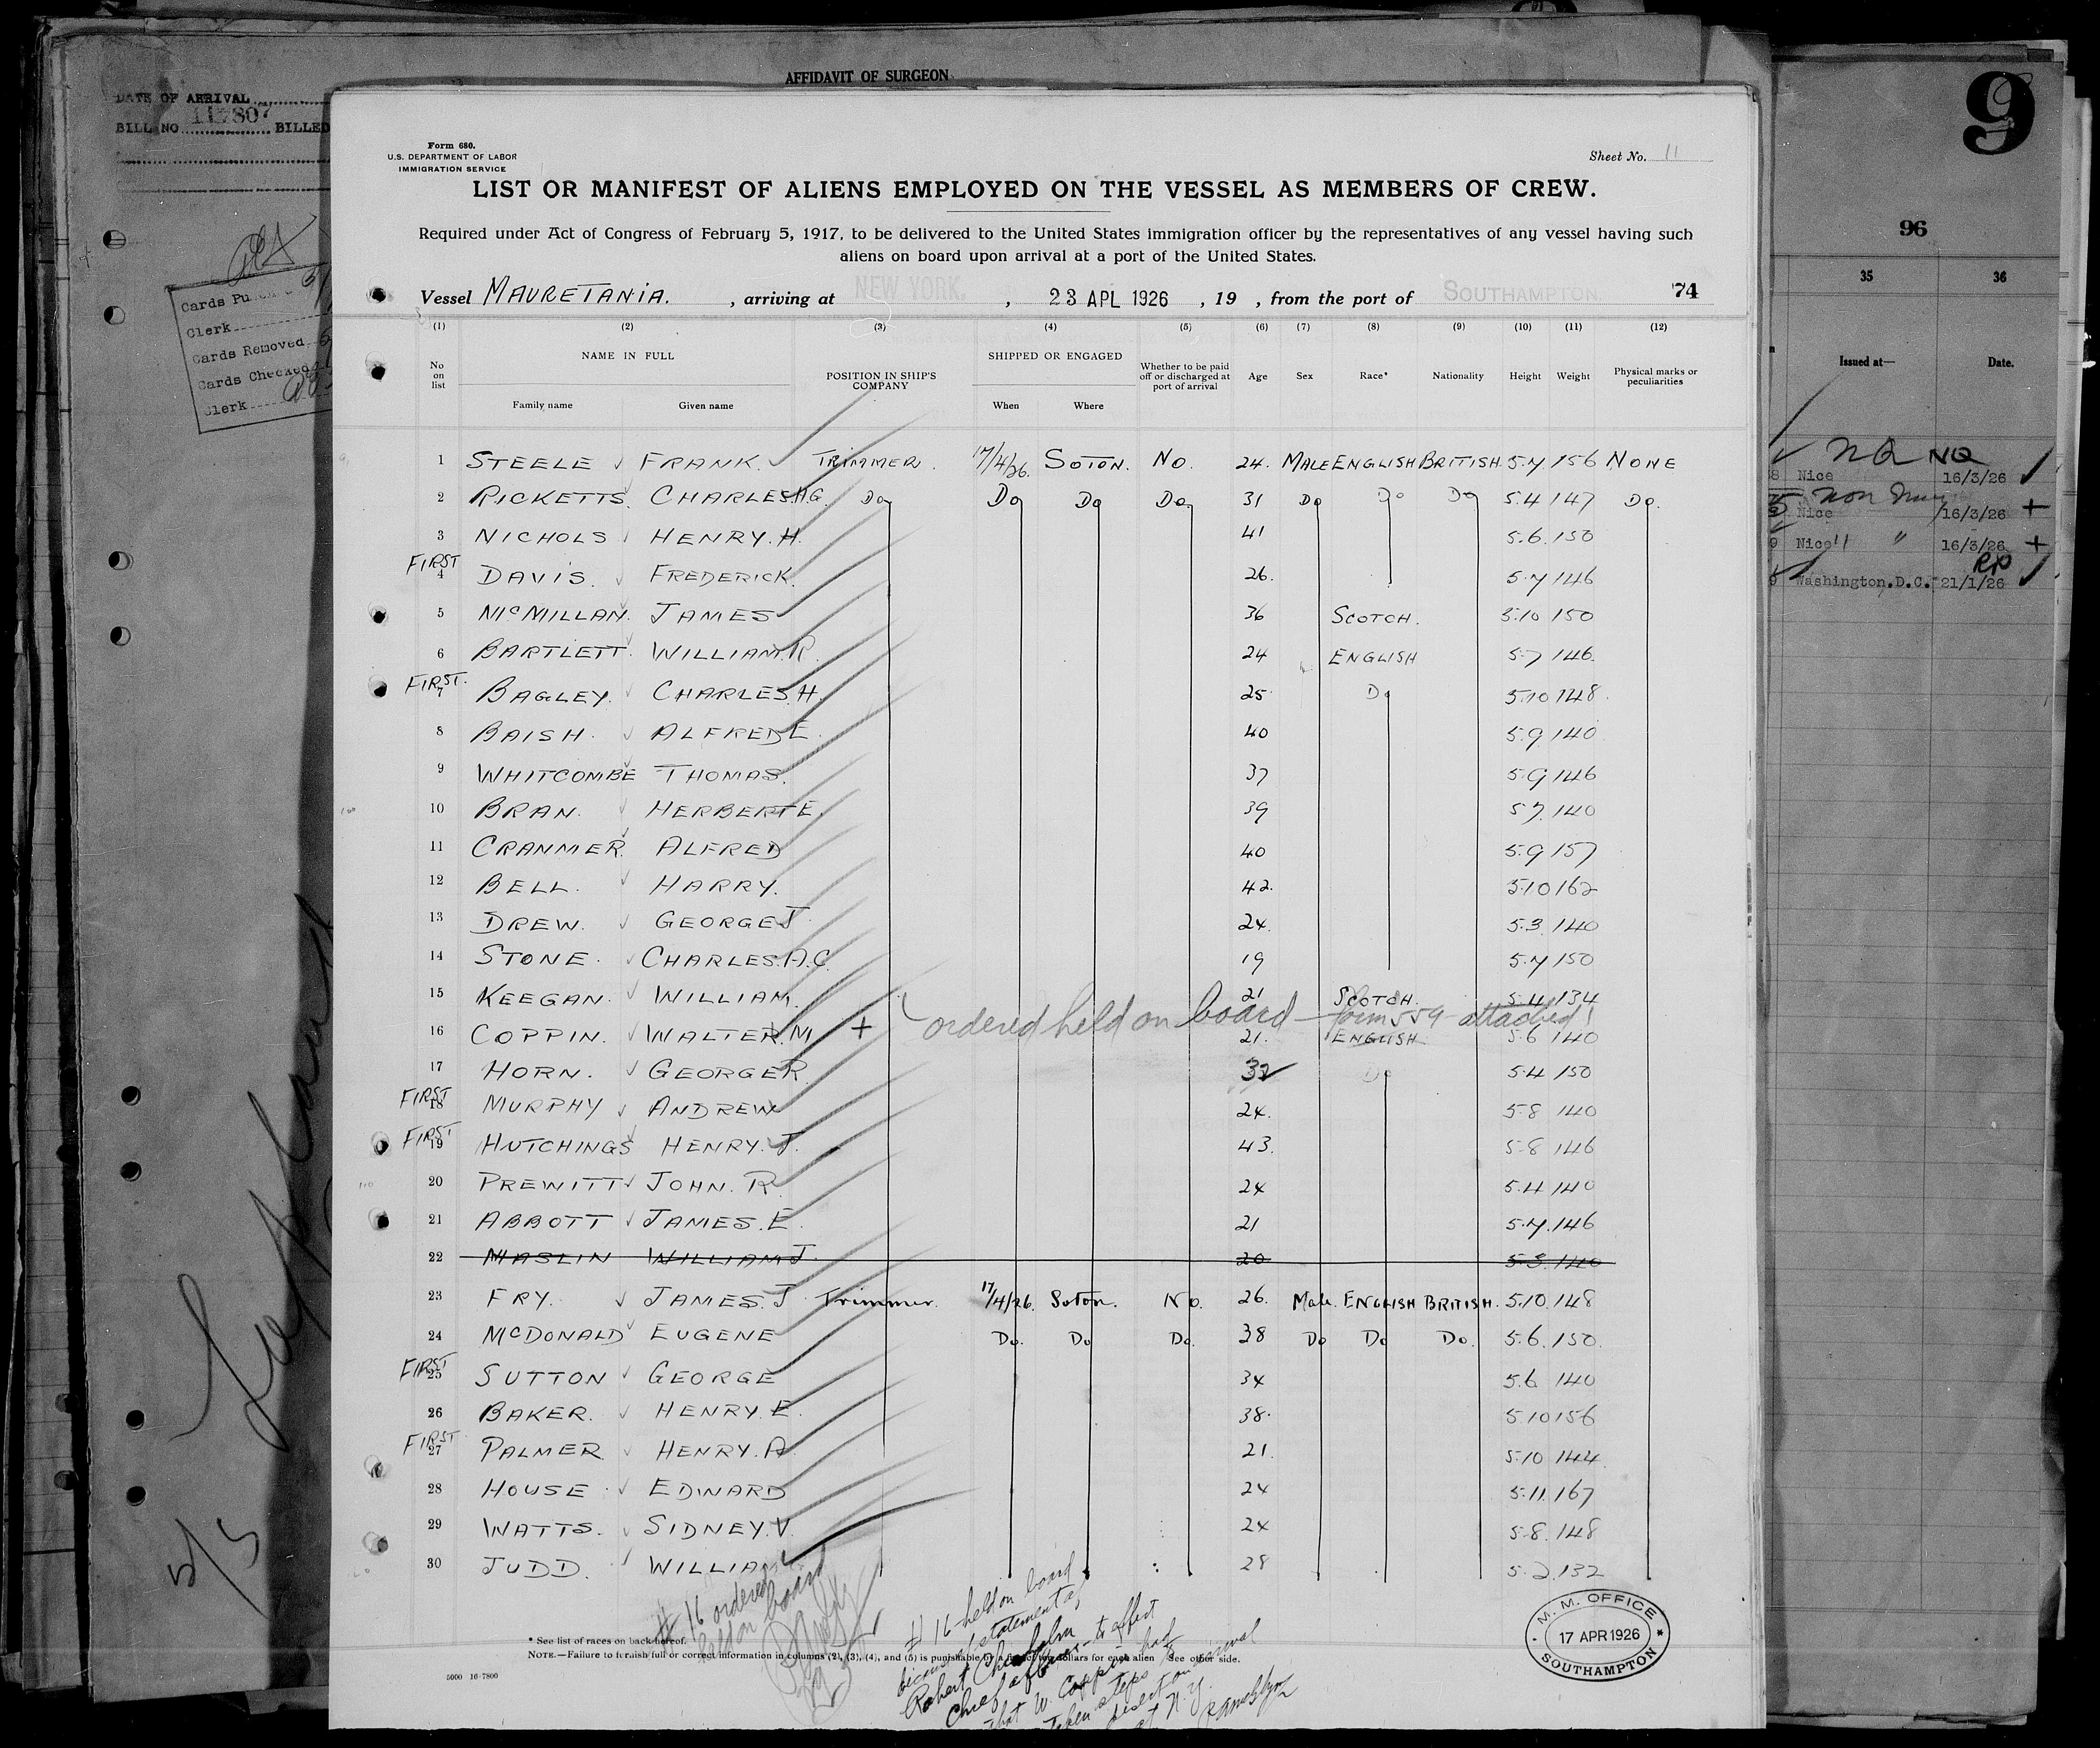 AFFIDAVIT OF SURGEON
DATE OF ARRIVAL
BILL NO 117807 BILLED
Cards
Clerk
Cards Removed
Cards Checked
Clerk
5/5
9
96
35 36
Issued at— Date.
NQ NQ
Nice 16/3/26
non
Nice 16/3/26 +
Nice " " 16/3/26 +
RP
Washington.D.C. 21/1/26
Form 680.
U.S. DEPARTMENT OF LABOR
IMMIGRATION SERVICE
Sheet No. 11
LIST OR MANIFEST OF ALIENS EMPLOYED ON THE VESSEL AS MEMBERS OF CREW.
Required under Act of Congress of February 5, 1917, to be delivered to the United States immigration officer by the representatives of any vessel having such
aliens on board upon arrival at a port of the United States.
Vessel MAURETANIA. , arriving at NEW YORK. , 23 APL 1926 , 19 , from the port of SOUTHAMPTON 74
(1) (2) (3) (4) (5) (6) (7) (8) (9) (10) (11) (12)
No on list NAME IN FULL Family name Given name POSITION IN SHIP'S COMPANY SHIPPED OR ENGAGED When Where Whether to be paid off or discharged at port of arrival Age Sex Race* Nationality Height Weight Physical marks or peculiarities
1 STEELE FRANK. TRIMMER. 17/4/26. SOTON. NO. 24. MALE ENGLISH BRITISH. 5.7 156 NONE
2 RICKETTS. CHARLES.H.G. Do Do Do Do. 31 Do Do Do 5.4 147 Do.
3 NICHOLS HENRY.H. 41 5.6. 150
FIRST 4 DAVIS. FREDERICK. 26. 5.7 146
5 McMILLAN. JAMES 36 SCOTCH. 5.10 150
6 BARTLETT. WILLIAM.R. 24 ENGLISH 5.7 146.
FIRST. 7 BAGLEY. CHARLES.H. 25 Do 5.10 148.
8 BAISH. ALFRED E. 40 5.9 140
9 WHITCOMBE THOMAS. 37 5.9 146
10 BRAN. HERBERT E. 39 5.7. 140
11 CRANMER. ALFRED 40 5.9 157
12 BELL. HARRY. 42. 5.10 162
13 DREW. GEORGE J 24. 5.3. 140
14 STONE. CHARLES.A.C. 19 5.7 150
15 KEEGAN. WILLIAM. 21 SCOTCH. 5.4. 134
ordered held on board — form 559 attached!
16 COPPIN. WALTER.M + 21. ENGLISH 5.6 140
17 HORN. GEORGE R. 32 Do 5.4 150
FIRST 18 MURPHY ANDREW 24. 5.8 140
FIRST 19 HUTCHINGS HENRY.J. 43. 5.8 146
20 PREWITT JOHN.R. 24 5.4 140
21 ABBOTT JAMES.E. 21 5.7. 146
22 MASLIN WILLIAM J 20 5.3. 140
23 FRY. JAMES.J Trimmer. 17/4/26. Soton. No. 26. Male. ENGLISH BRITISH. 5.10. 148
24 McDONALD EUGENE Do. Do Do. 38 Do Do Do. 5.6. 150.
FIRST 25 SUTTON GEORGE 34 5.6 140
26 BAKER. HENRY.E. 38. 5.10 156
FIRST 27 PALMER HENRY.A. 21. 5.10 144.
28 HOUSE EDWARD 24 5.11. 167
29 WATTS. SIDNEY.V. 24 5.8. 148
30 JUDD. WILLIAM 28 5.2. 132
# 16 ordered
held on board
# 16 held on board
statement of
Robert Chisholm
Chief officer to effect
that W. Coppin had
taken steps to
desert on arrival
at N.Y.
* See list of races on back hereof.
NOTE.—Failure to furnish full or correct information in columns (2), (3), (4), and (5) is punishable by a fine of ten dollars for each alien See other side.
5000 16-7800
M. M. OFFICE
17 APR 1926
SOUTHAMPTON